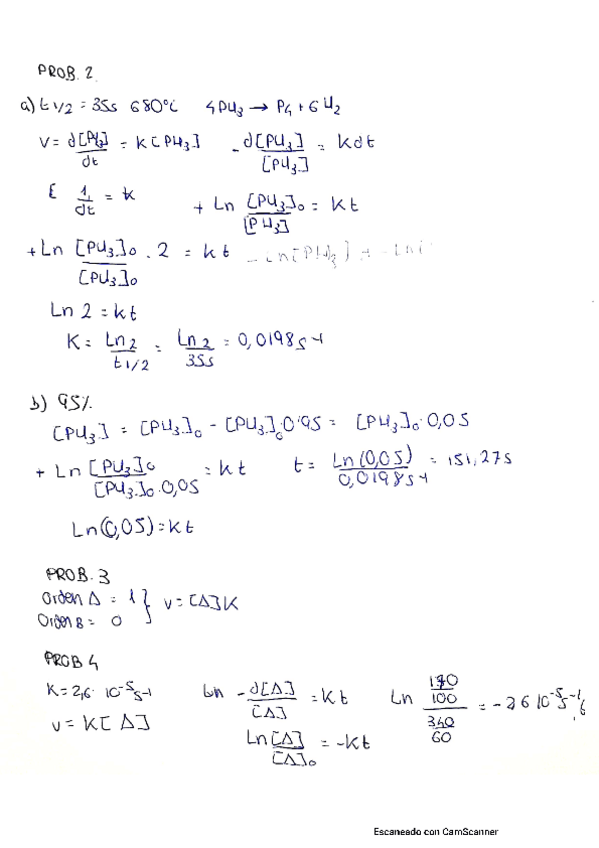 PROB. 2
a) t 1/2 = 35s 680ºC 4PH₃ → P₄ + 6H₂
V = d[PH₃]/dt = K[PH₃] - d[PH₃]/[PH₃] = Kdt
[ 1/dt = k + Ln [PH₃]₀/[PH₃] = Kt
+ Ln [PH₃]₀ . 2/[PH₃]₀ = kt
Ln 2 = kt
K = Ln 2/t 1/2 = Ln 2/35s = 0,0198 s-1
b) 95%
[PH₃] = [PH₃]₀ - [PH₃]₀ 0'95 = [PH₃]₀ 0,05
+ Ln [PH₃]₀/[PH₃]₀ 0,05 = kt t = Ln(0,05)/0,0198 s-1 = 151,27s
Ln(0,05) = kt
PROB. 3
Orden A = 1 } v = [A]K
Orden B = 0
PROB 4
K = 2,6 · 10⁻⁵ s-1 Ln - d[A]/[A] = Kt Ln
v = K[A] Ln [A]/[A]₀ = -Kt 340/60
Escaneado con CamScanner